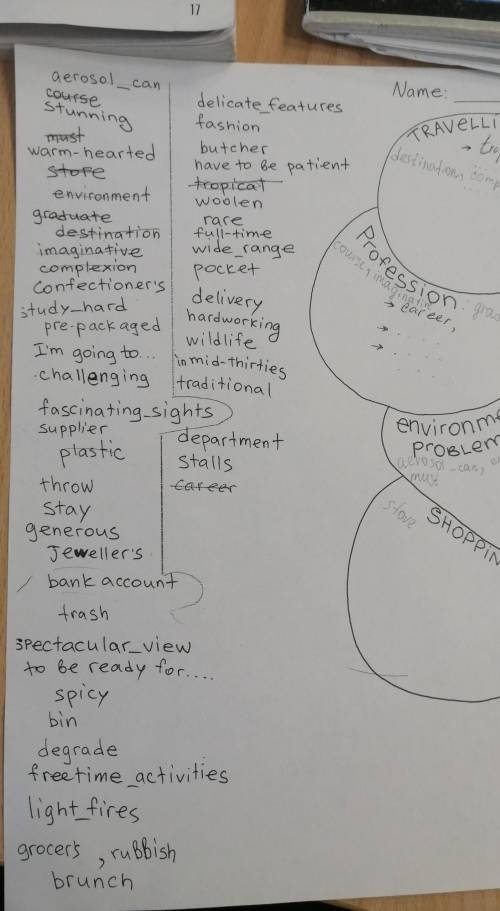 17
aerosol_can
course
stunning
must
warm-hearted
store
environment
graduate
destination
imaginative
complexion
confectioner's
study_hard
pre-packaged
I'm going to...
challenging
fascinating_sights
supplier
plastic
throw
stay
generous
Jeweller's
bank account
trash
spectacular_view
to be ready for....
spicy
bin
degrade
freetime_activities
light_fires
grocer's , rubbish
brunch
delicate_features
fashion
butcher
have to be patient
tropical
woolen
rare
full-time
wide_range
pocket
delivery
hardworking
wildlife
in mid-thirties
traditional
department
stalls
career
Name:
TRAVELLI
→ trop
destination, comp
Profession
: grad
course, imaginativ
→ career,
→ .....
→ ....
environme
PROBLEM
aerosol_can, e
must
SHOPPIN
store